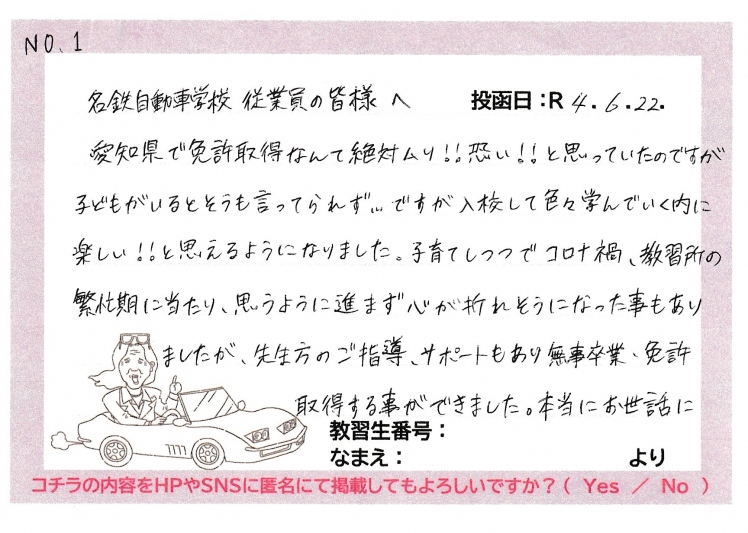 NO.1
名鉄自動車学校 従業員の皆様へ 投函日:R4.6.22.
愛知県で免許取得なんて絶対ムリ!!恐い!!と思っていたのですが
子どもがいるとそうも言ってられず…ですが入校して色々学んでいく内に
楽しい!!と思えるようになりました。子育てしつつでコロナ禍、教習所の
繁忙期に当たり、思うように進まず心が折れそうになった事もあり
ましたが、先生方のご指導、サポートもあり無事卒業・免許
取得する事ができました。本当にお世話に
教習生番号:
なまえ: より
コチラの内容をHPやSNSに匿名にて掲載してもよろしいですか?( Yes / No )